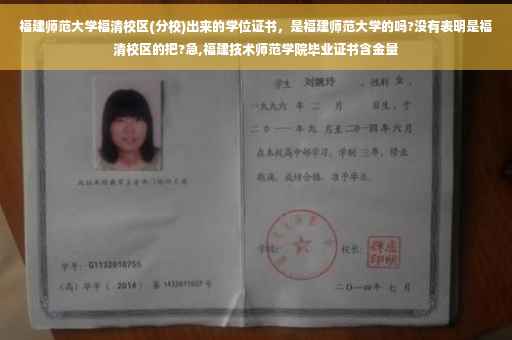 福建师范大学福清校区(分校)出来的学位证书，是福建师范大学的吗?没有表明是福
清校区的把?急,福建技术师范学院毕业证书含金量
学生 刘婉玲 ，性别 女 ，
一九九六 年 二 月 日生，于
二〇一一年九 月至二〇一四年六月
在本校高中部学习，学制 三年，修业
期满，成绩合格，准予毕业。
学号： G1132010755
(高) 毕字 ( 2014 ) 第 1432011037 号
学校： 校长：
二〇一四年 七 月